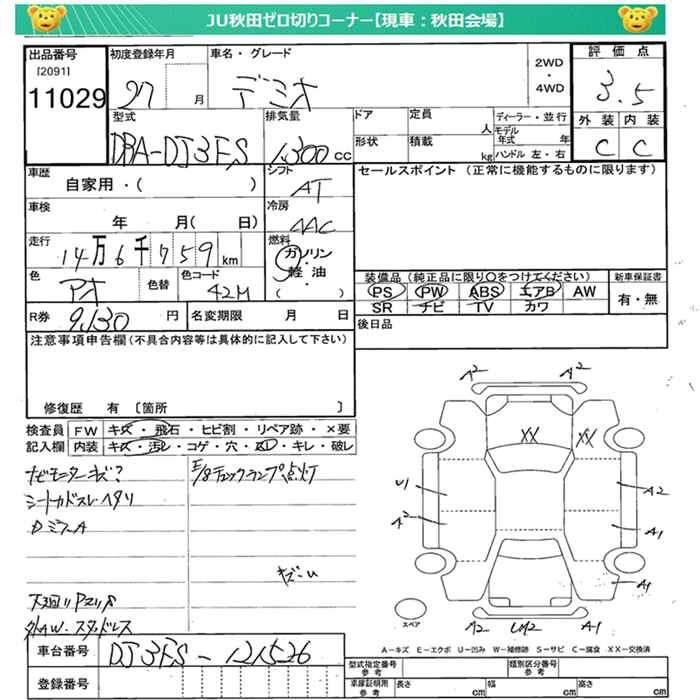 JU秋田ゼロ切りコーナー【現車：秋田会場】
出品番号
[2091]
11029
初度登録年月
27 月
車名・グレード
デミオ
2WD
・
4WD
評価点
3.5
外装 内装
C C
型式
DBA-DJ3FS
排気量
1,300 cc
ドア
形状
定員
人
積載
kg
ディーラー・並行
モデル年式 年
ハンドル 左・右
車歴
自家用・( )
シフト
AT
車検
年 月( 日)
冷房
AAC
走行
14万6千759km
燃料
ガソリン
軽・油
( )
色
アオ
色替
色コード
42M
R券
9,130 円
名変期限 月 日
セールスポイント (正常に機能するものに限ります)
装備品(純正品に限り○をつけてください)
PS PW ABS エアB AW
SR ナビ TV カワ
新車保証書
有・無
後日品
注意事項申告欄(不具合内容等は具体的に記入して下さい)
修復歴 有 〔箇所 〕
検査員記入欄
FW キズ・飛石・ヒビ割・リペア跡・×要
内装 キズ・汚レ・コゲ・穴・スレ・キレ・破レ
ナビモニターキズ?
シートカドスレ・ヘタリ
ミラーA
E/gチェックランプ点灯
キズ・U
下廻リ
外AW.スタッドレス
A2 A2
XX XX
U1
A2
A2
A1
A1
スペア
A2 UM2 A1
A-キズ E-エクボ U-凹み W-補修跡 S-サビ C-腐食 XX-交換済
車台番号
DJ3FS-121526
登録番号
型式指定番号
参考
類別区分番号
参考
車庫証明用
参考
長さ cm 幅 cm 高さ cm